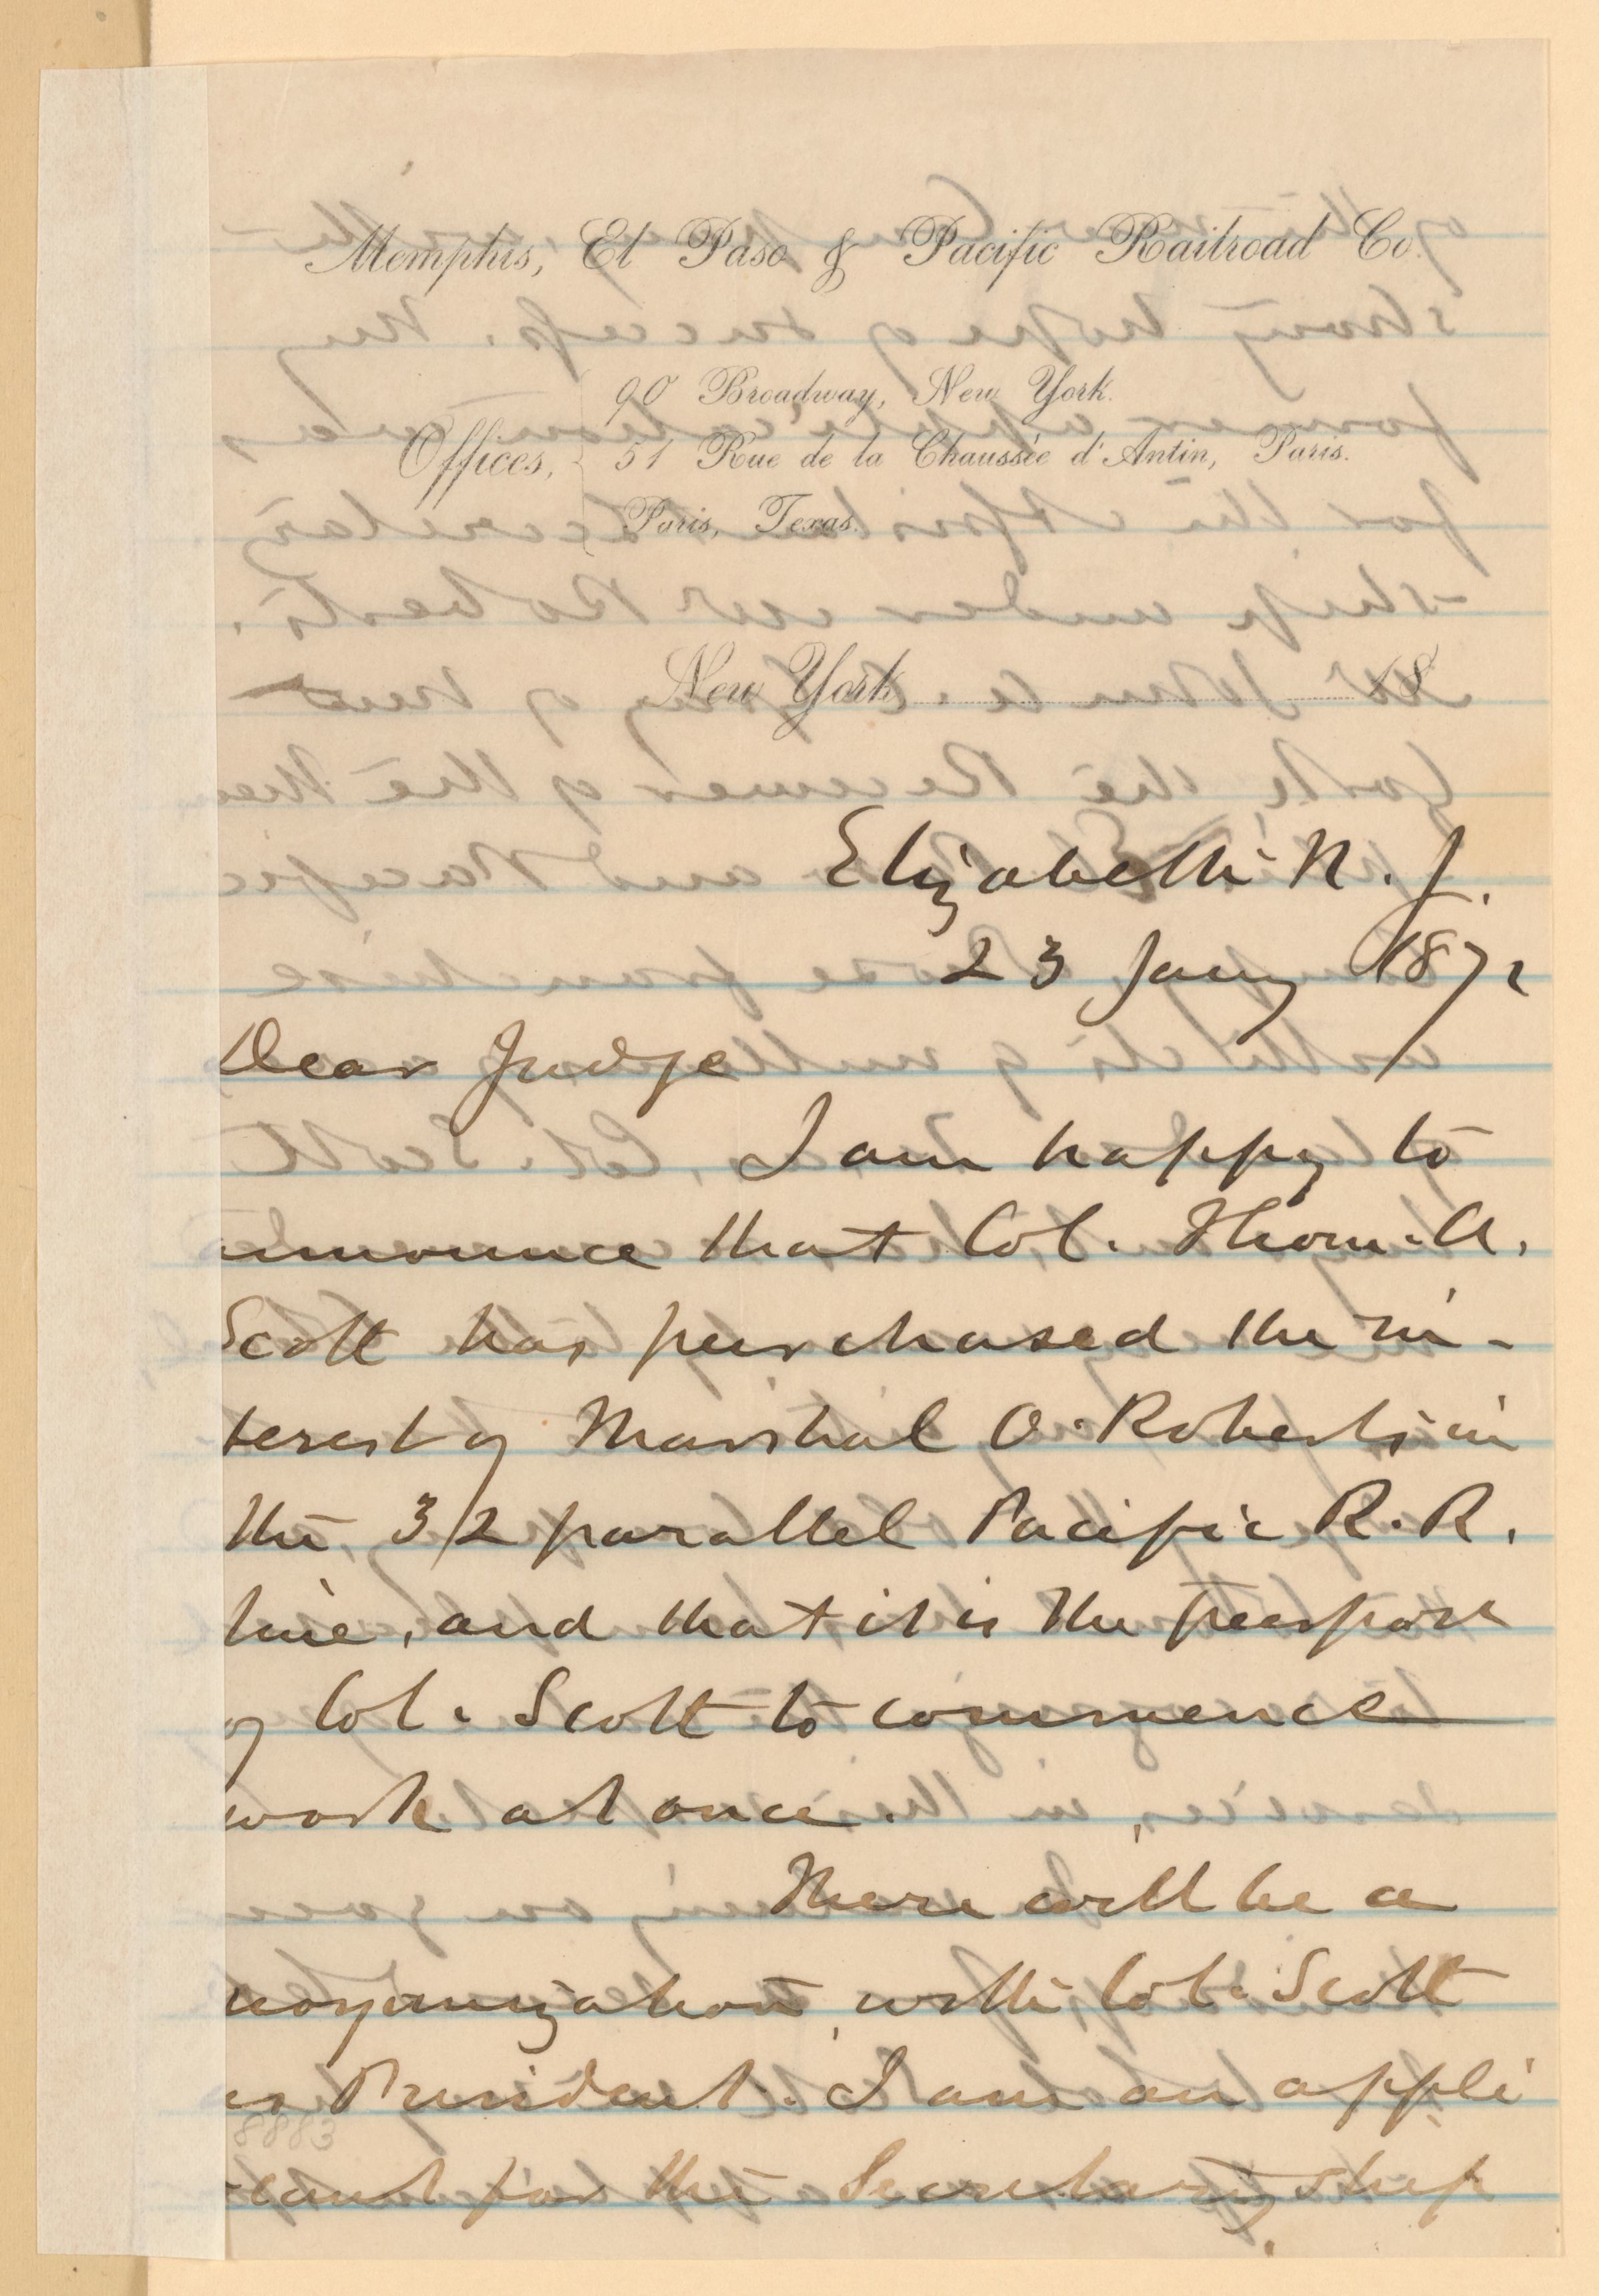 Memphis, El Paso & Pacific Railroad Co.
90 Broadway, New York.
Offices, 51 Rue de la Chaussée d'Antin, Paris.
Paris, Texas.
New York 18
Elizabeth N. J.
23 Jany 1872
Dear Judge
I am happy to
announce that Col. Thom. A.
Scott has purchased the in-
terest of Marshal O. Roberts in
the 32 parallel Pacific R. R.
line, and that it is the purpose
of Col. Scott to commence
work at once.
There will be a
reorganization, with Col. Scott
as President. I am an appli
-cant for the Secretary ship
8883